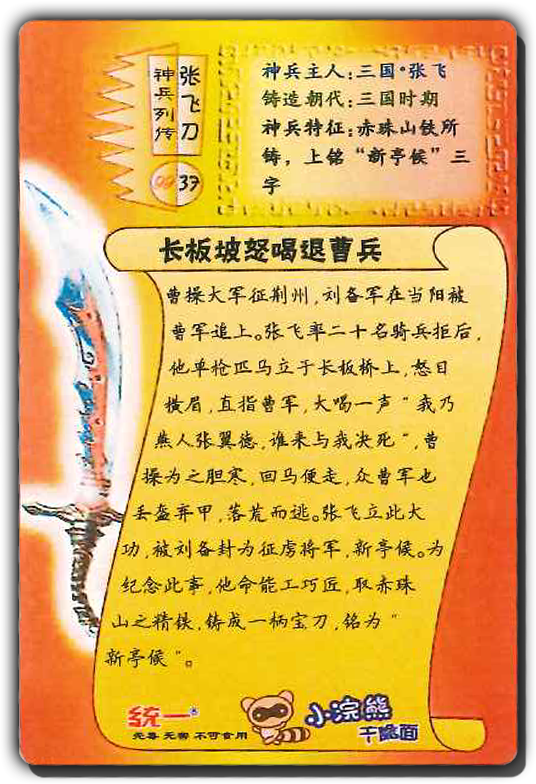 神兵列传
张飞刀
37
神兵主人：三国·张飞
铸造朝代：三国时期
神兵特征：赤珠山铁所
铸，上铭“新亭候”三
字
长板坡怒喝退曹兵
曹操大军征荆州，刘备军在当阳被
曹军追上。张飞率二十名骑兵拒后，
他单枪匹马立于长板桥上，怒目
横眉，直指曹军，大喝一声“我乃
燕人张翼德，谁来与我决死”，曹
操为之胆寒，回马便走，众曹军也
丢盔弃甲，落荒而逃。张飞立此大
功，被刘备封为征虏将军，新亭候。为
纪念此事，他命能工巧匠，取赤珠
山之精铁，铸成一柄宝刀，铭为“
新亭候”。
统一®
无毒 无害 不可食用
小浣熊
干脆面